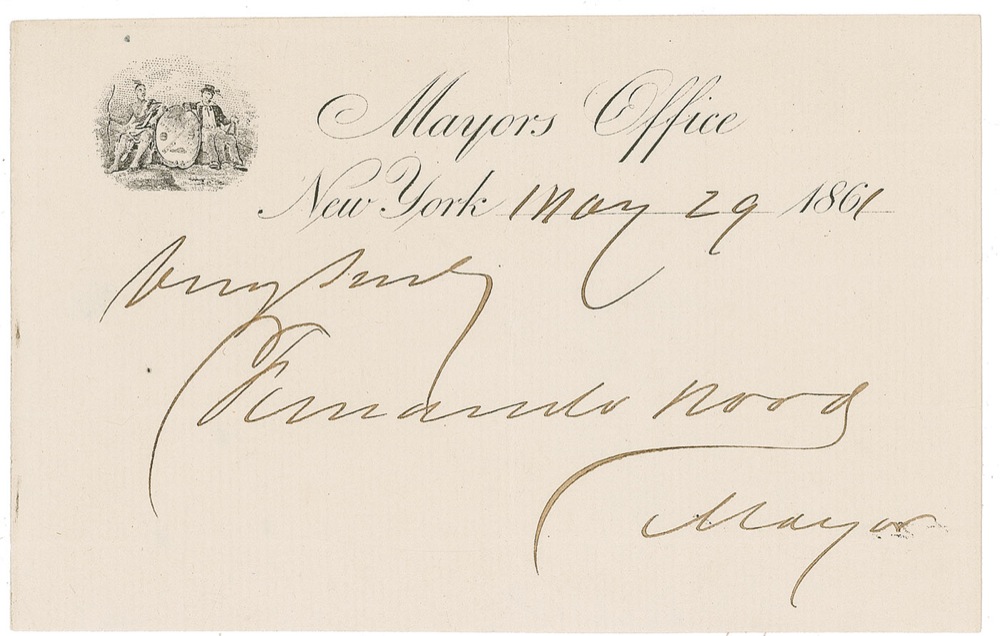 Mayors Office
New York May 29 1861
Very Truly
Fernando Wood
Mayor